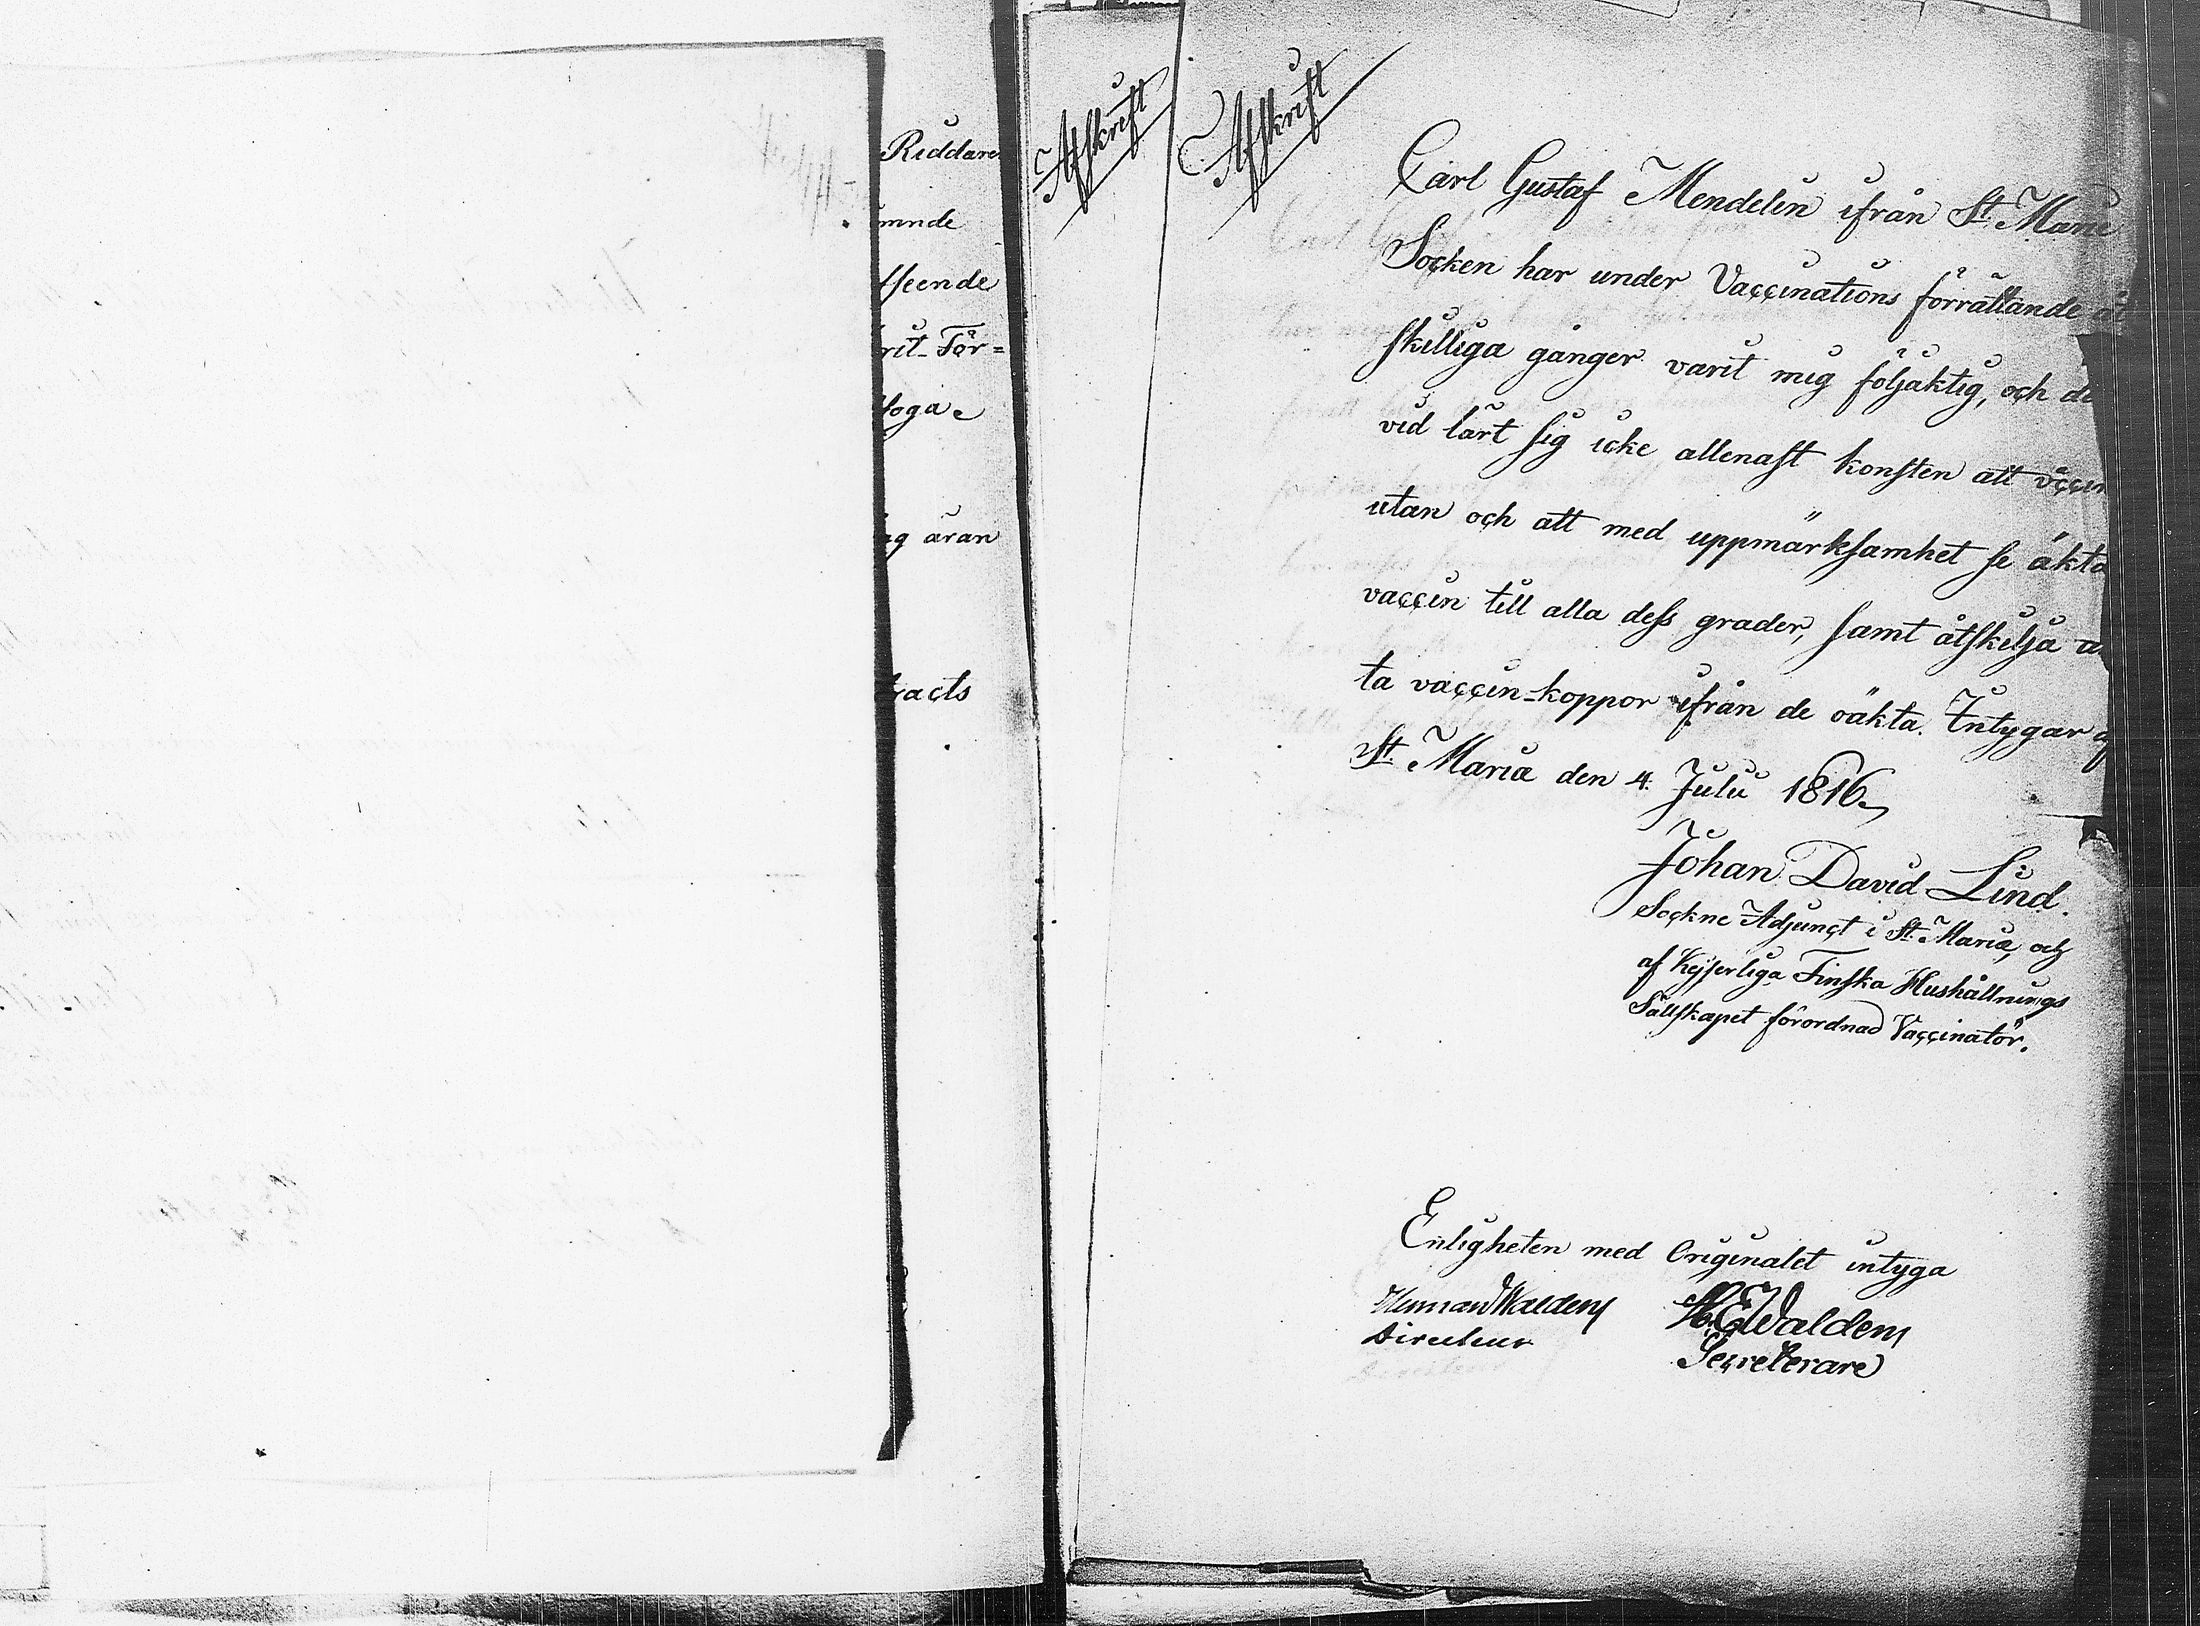 Riddare
mnde
seende
rit-Tör=
loga
äran
tracts
Afskrift
Afskrift
Carl Gustaf Mendelin ifrån St. Marie
Socken har under Vaccinations förrättande
skilliga gånger varit mig följaktig, och de
vid lärt sig icke allenast konsten att vccin
utan och att med uppmärksamhet se äkta
vaccin till alla dess grader, samt åtskilja
ta vaccin-koppor ifrån de oäkta. Intygar af
St. Maria den 4. Julii 1816.
Johan David Lind.
Sockne Adjunct i St. Maria, och
af Kejserliga Finska Hushållnings
Sällskapet förordnad Vaccinatör.
Enligheten med Originalet intyga
Herman Waldens HEWaldens
Directeur Secreterare